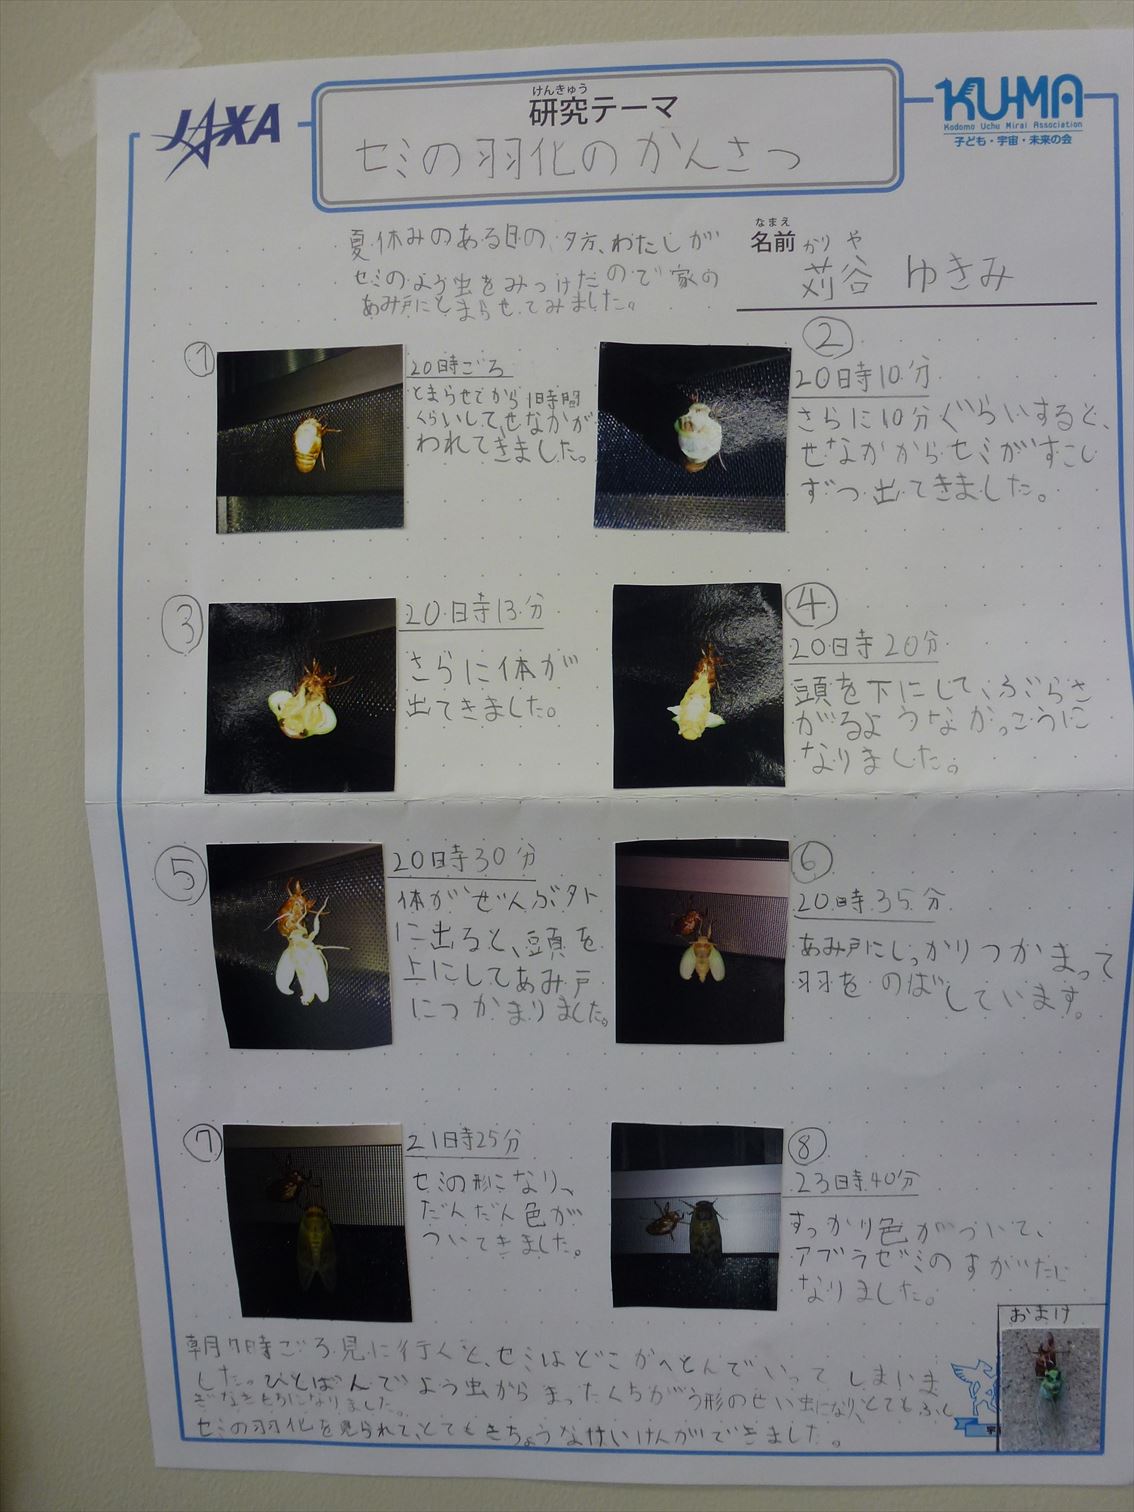 JAXA
けんきゅう
研究テーマ
セミの羽化のかんさつ
KU-MA
Kodomo Uchu Mirai Association
子ども・宇宙・未来の会
夏休みのある日の夕方、わたしが
セミのよう虫をみつけたので家の
あみ戸にとまらせてみました。
なまえ
名前
かりや
苅谷 ゆきみ
①
20時ごろ
とまらせてから1時間
くらいして、せなかが
われてきました。
②
20時10分
さらに10分ぐらいすると、
せなかからセミがすこし
ずつ出てきました。
③
20時13分
さらに体が
出てきました。
④
20時20分
頭を下にして、ぶらさ
がるようなかっこうに
なりました。
⑤
20時30分
体がぜんぶ外
に出ると、頭を
上にしてあみ戸
につかまりました。
⑥
20時35分
あみ戸にしっかりつかまって
羽をのばしています。
⑦
21時25分
セミの形になり、
だんだん色が
ついてきました。
⑧
23時40分
すっかり色がついて、
アブラゼミのすがたに
なりました。
おまけ
朝7時ごろ見に行くと、セミはどこかへとんでいってしまいま
した。ひとばんでよう虫からまったくちがう形のせい虫になり、とてもふし
ぎな
セミの羽化を見られて、とてもきちょうなけいけんができました。
宇